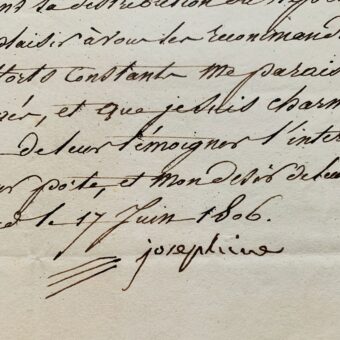 la distribution du
plaisir à vous les recommand
forts constants me parais
, et que je suis charm
de leur témoigner l'inter
porte, et mon désir de leur
le 17 Juin 1806.
josephine